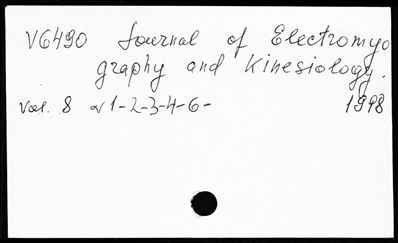 V6490 Journal of Electromyo
graphy and Kinesiology.
Vol. 8 N 1-2-3-4-6- 1998